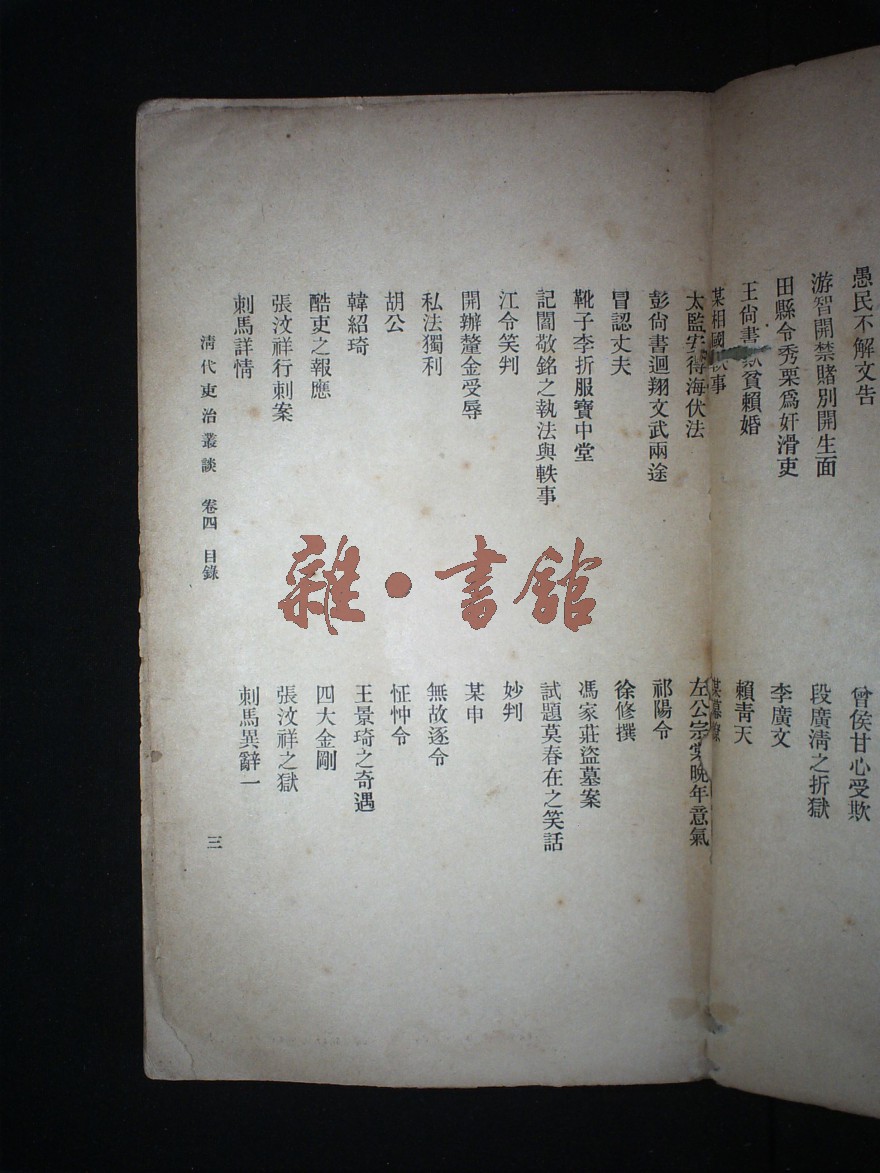 愚民不解文告
曾侯甘心受欺
游智開禁賭別開生面
段廣清之折獄
田縣令秀栗爲奸滑吏
李廣文
王尙書貧賴婚
賴靑天
某相國事
某幕
太監安得海伏法
左公宗棠晚年意氣
彭尙書迴翔文武兩途
祁陽令
冒認丈夫
徐修撰
靴子李折服寶中堂
馮家莊盜墓案
記閻敬銘之執法與軼事
試題莫春在之笑話
江令笑判
妙判
開辦釐金受辱
某申
私法獨利
無故逐令
胡公
怔忡令
韓紹琦
王景琦之奇遇
酷吏之報應
四大金剛
張汶祥行刺案
張汶祥之獄
刺馬詳情
刺馬異辭一
淸代吏治叢談 卷四 目錄 三
雜·書館